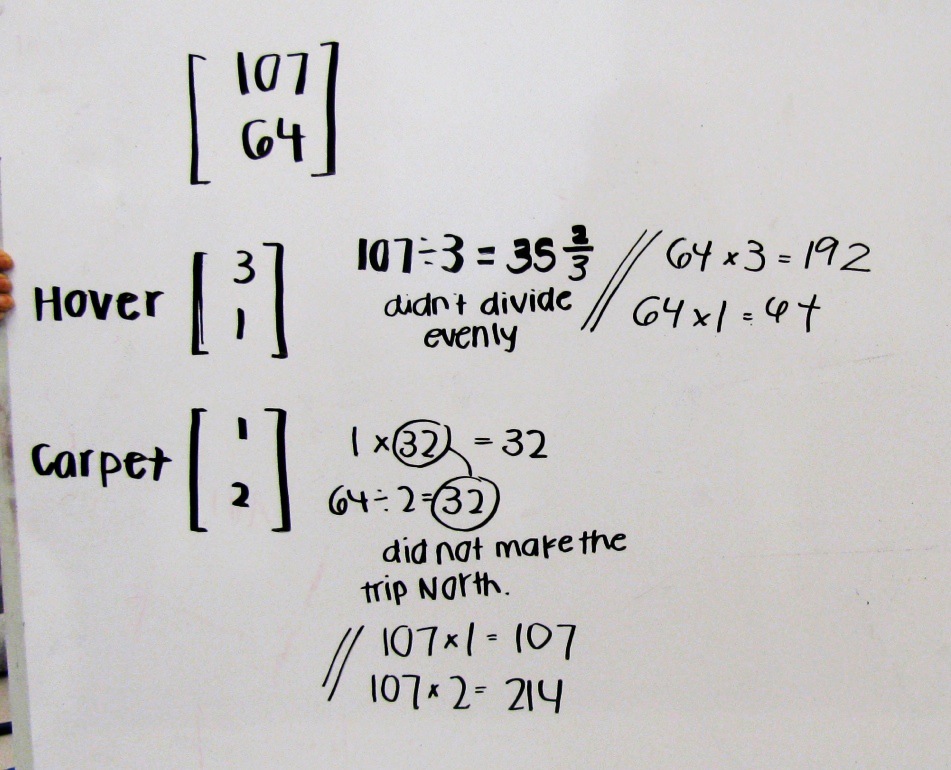 107
64
Hover
3
1
107÷3 = 35 2/3
didn't divide
evenly
// 64 x 3 = 192
64 x 1 = 64
Carpet
1
2
1 x 32 = 32
64÷2=32
did not make the
trip North.
// 107 x 1 = 107
107 x 2 = 214